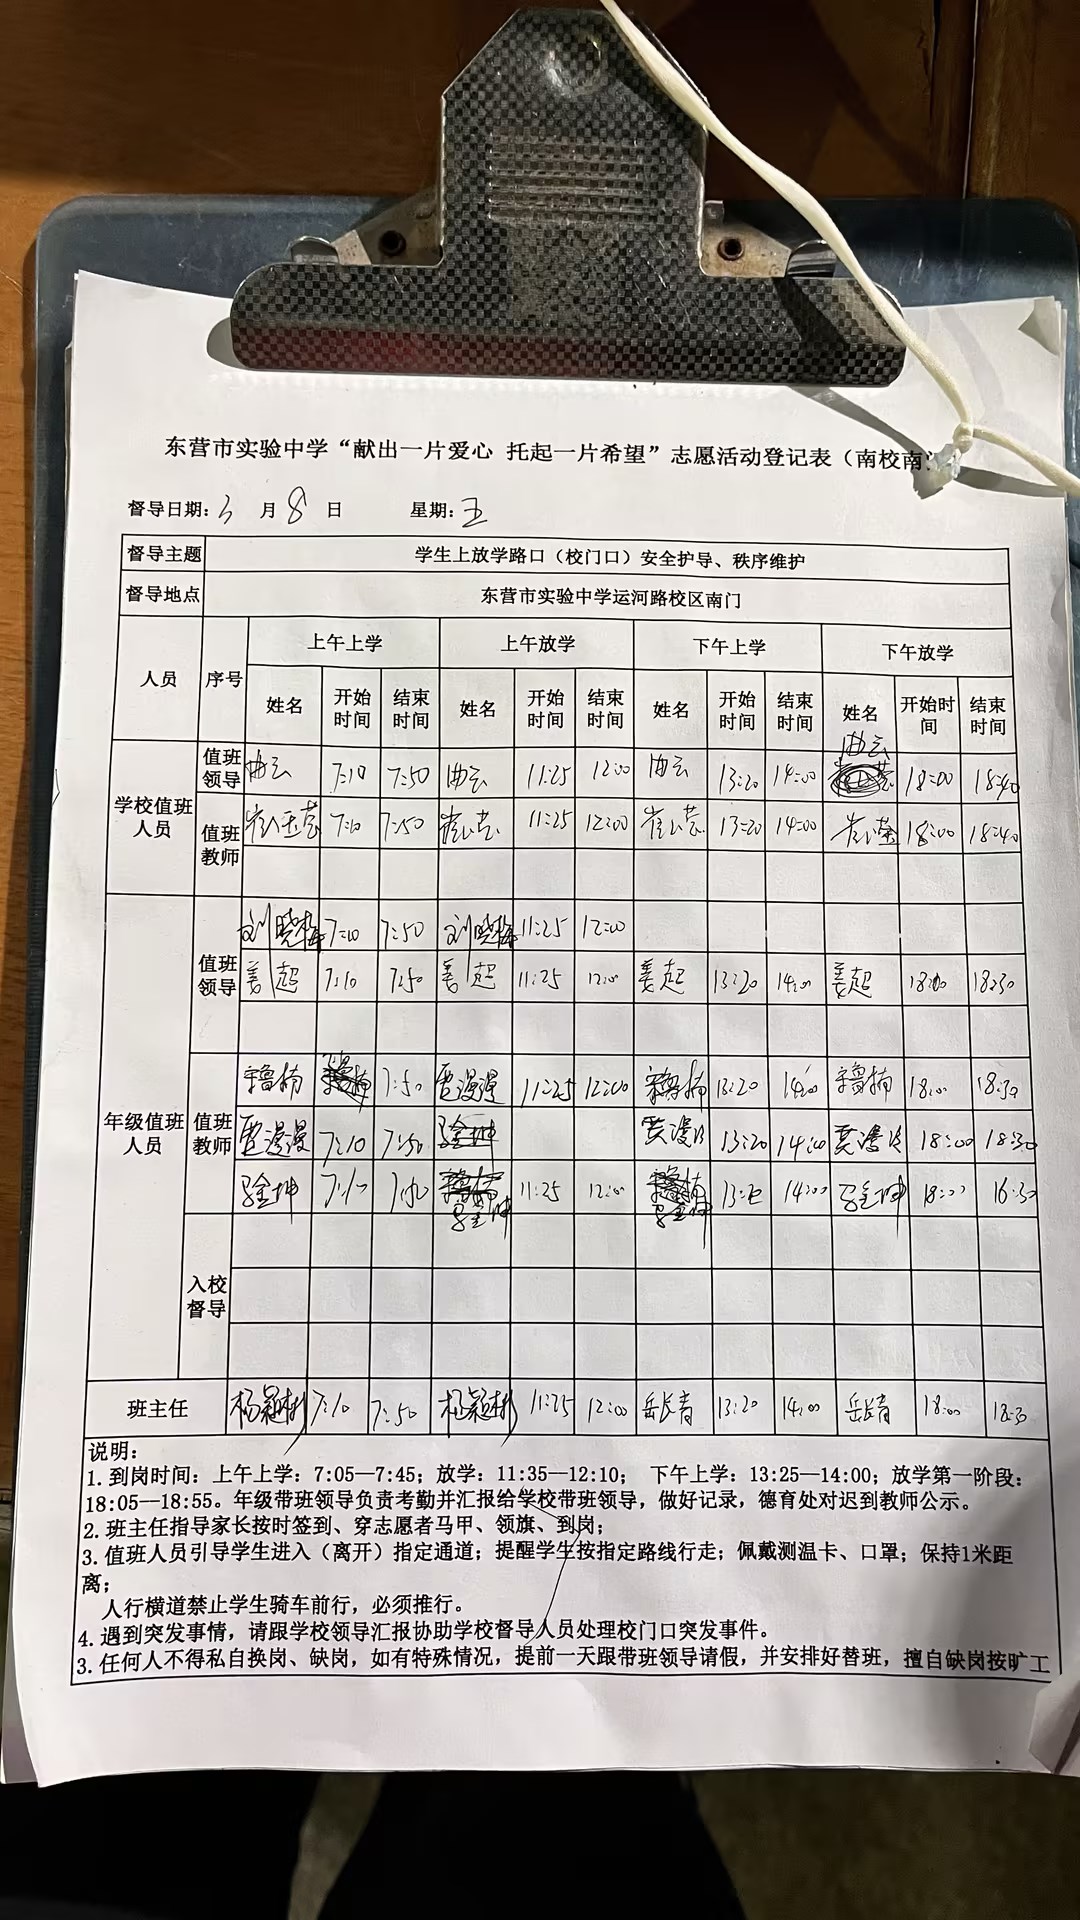 东营市实验中学“献出一片爱心 托起一片希望”志愿活动登记表（南校南
督导日期：3 月 8 日 星期：五
督导主题 学生上放学路口（校门口）安全护导、秩序维护
督导地点 东营市实验中学运河路校区南门
人员 序号 上午上学 上午放学 下午上学 下午放学
姓名 开始时间 结束时间 姓名 开始时间 结束时间 姓名 开始时间 结束时间 姓名 开始时间 结束时间
学校值班人员 值班领导 曲云 7:10 7:50 曲云 11:25 12:00 曲云 13:20 14:00 曲云 18:00 18:40
值班教师 崔玉芸 7:10 7:50 崔玉芸 11:25 12:00 崔玉芸 13:20 14:00 崔玉芸 18:00 18:40
年级值班人员 值班领导 刘晓梅 7:10 7:50 刘晓梅 11:25 12:00
姜超 7:10 7:50 姜超 11:25 12:00 姜超 13:20 14:00 姜超 18:00 18:30
值班教师 7:50 贾漫漫 11:25 12:00 13:20 14:00 18:00 18:30
贾漫漫 7:10 7:50 贾漫漫 13:20 14:00 贾漫漫 18:00 18:30
7:10 11:25 12:00 13:20 14:00 18:00 16:30
入校督导
班主任 杨颖彬 7:10 7:50 杨颖彬 11:25 12:00 岳长青 13:20 14:00 岳长青 18:00 18:30
说明：
1. 到岗时间：上午上学：7:05—7:45；放学：11:35—12:10； 下午上学：13:25—14:00；放学第一阶段：
18:05—18:55。年级带班领导负责考勤并汇报给学校带班领导，做好记录，德育处对迟到教师公示。
2. 班主任指导家长按时签到、穿志愿者马甲、领旗、到岗；
3. 值班人员引导学生进入（离开）指定通道；提醒学生按指定路线行走；佩戴测温卡、口罩；保持1米距
离；
人行横道禁止学生骑车前行，必须推行。
4. 遇到突发事情，请跟学校领导汇报协助学校督导人员处理校门口突发事件。
3. 任何人不得私自换岗、缺岗，如有特殊情况，提前一天跟带班领导请假，并安排好替班，擅自缺岗按旷工